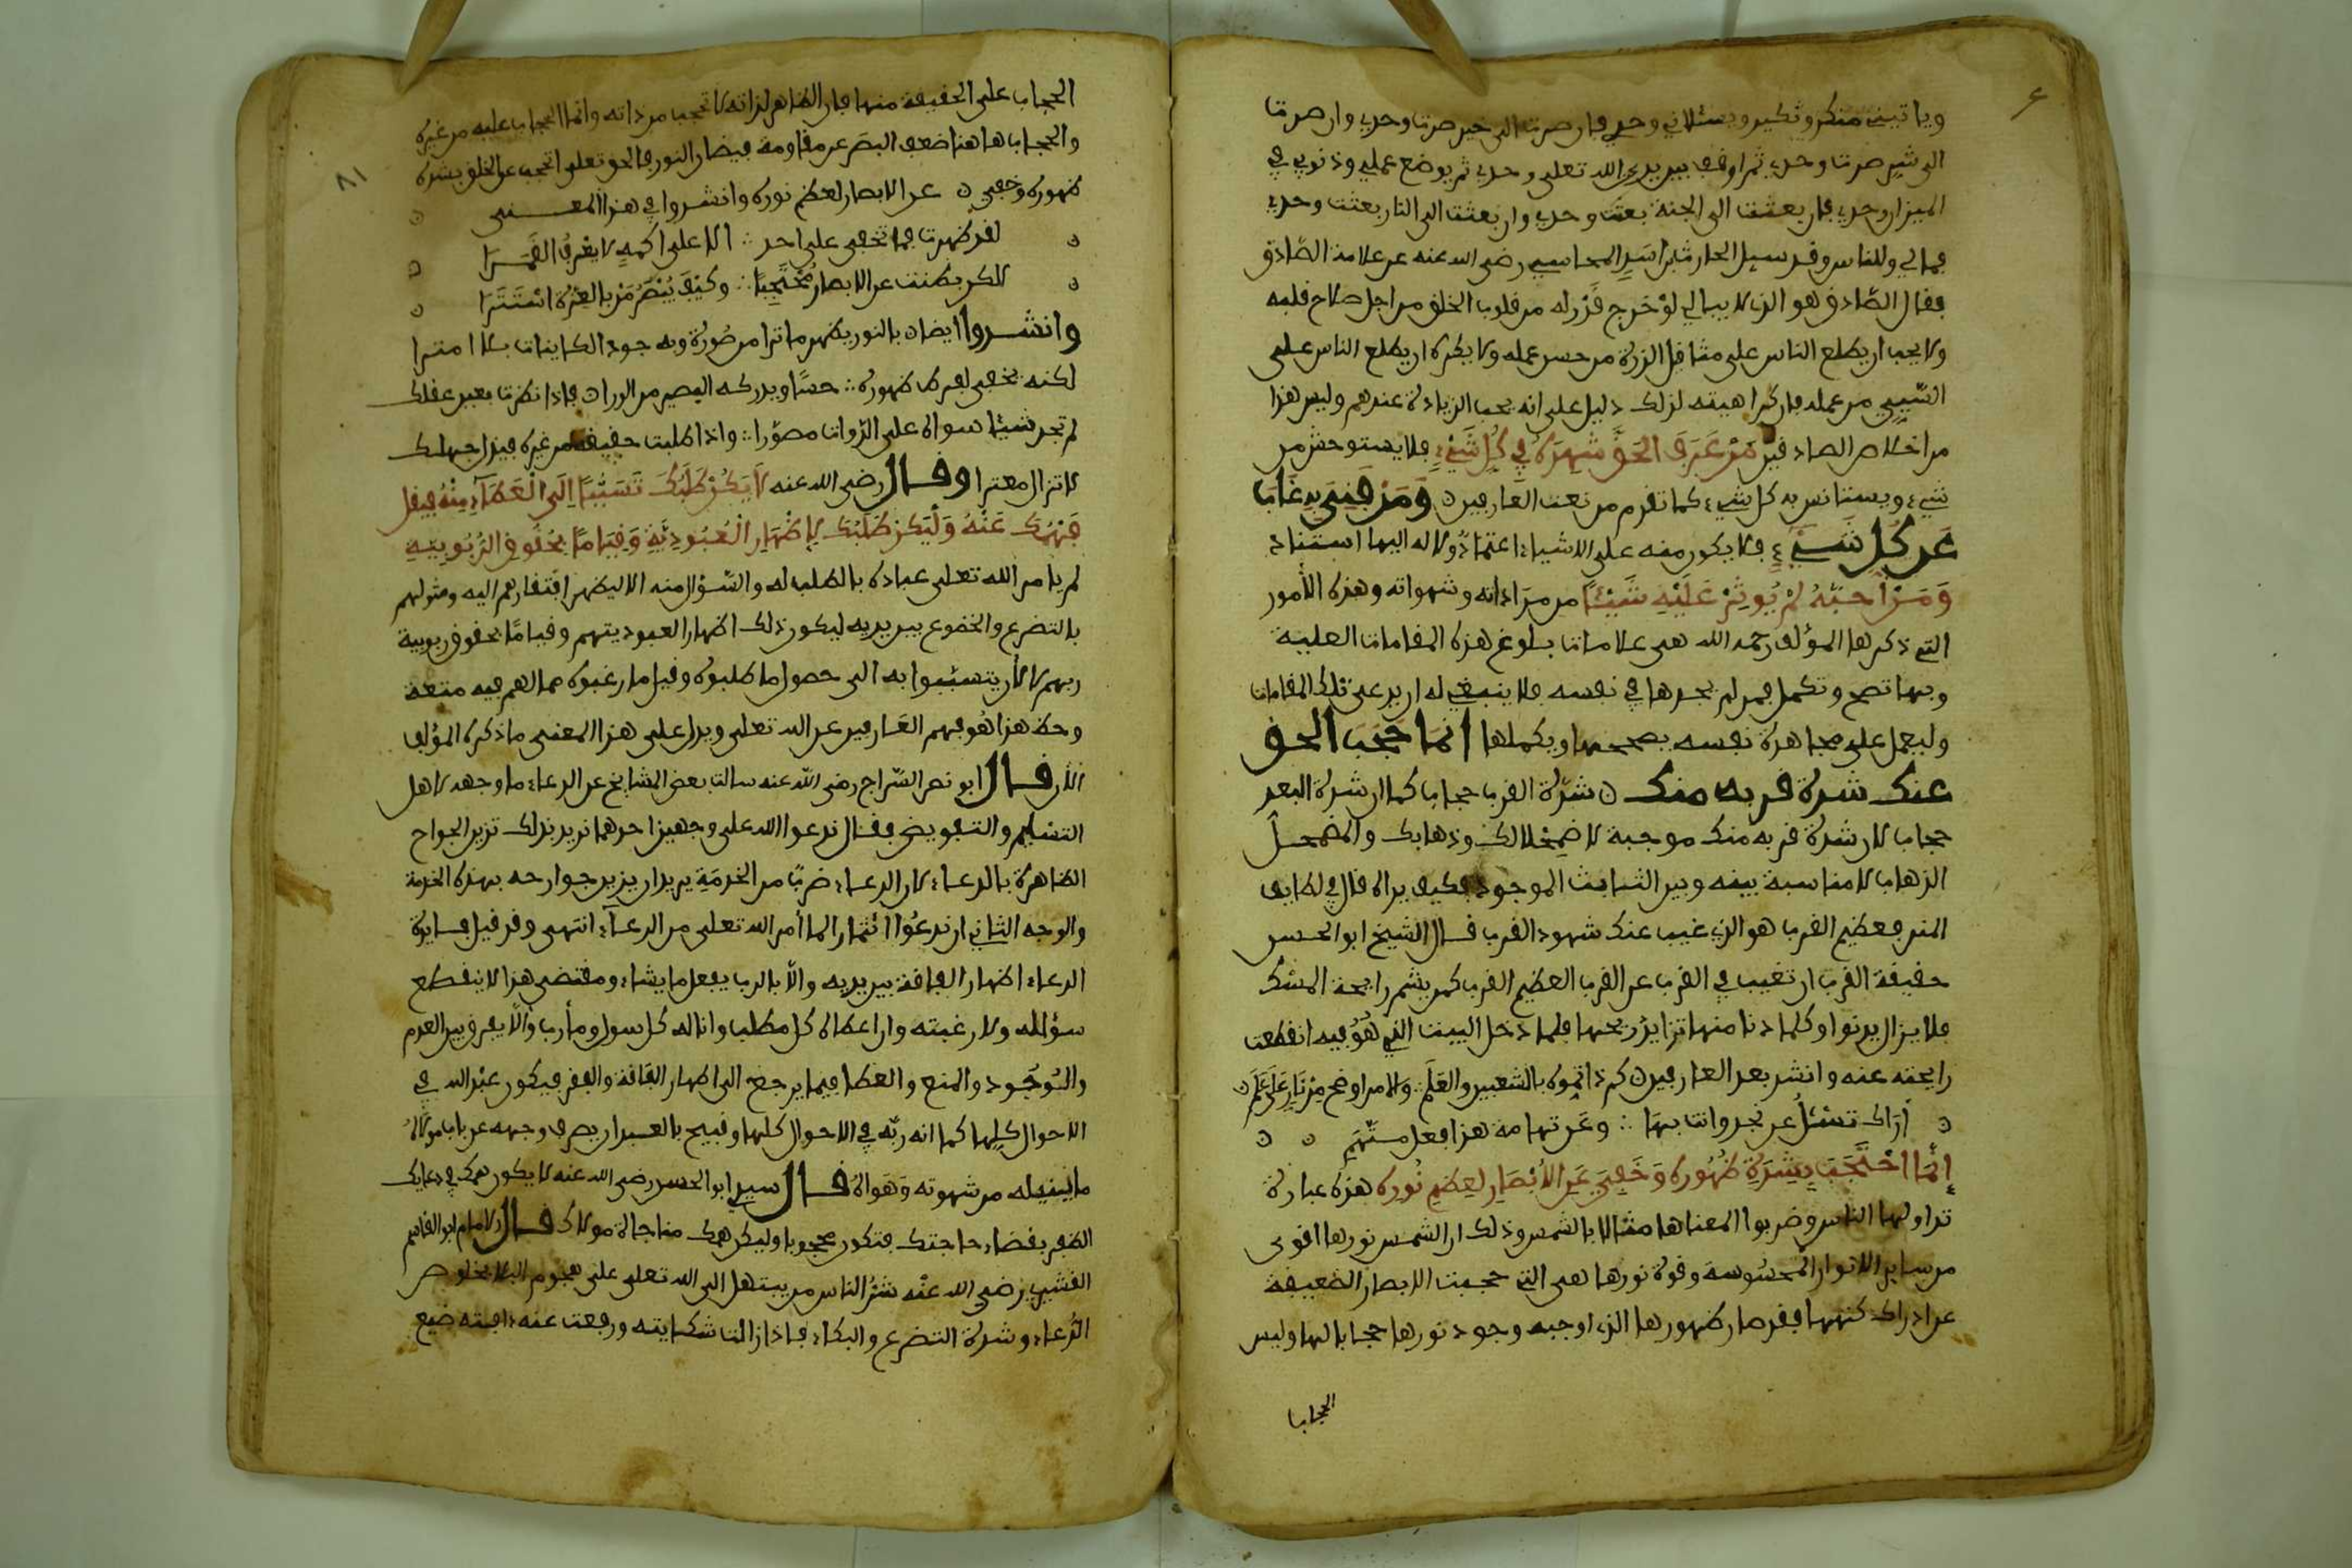 وياتيني منكر ونكير ويسئلاني وحدي فان صرت الى خير صرت وحدي وان صرت
الى شر صرت وحدي ثم اوقف بين يدي الله تعلى وحدي ثم يوضع عملي وذنوبي في
الميزان وحدي فان بعثت الى الجنة بعثت وحدي وان بعثت الى النار بعثت وحدي
فمالي وللناس وقد سيل الحارث بن اسد المحاسبي رضى الله عنه عن علامة الصّادق
فقال الصّادق هو الذي لا يبالي لوْ خرج قَدْر له من قلوب الخلق من اجل صلاح قلبه
ولا يحب ان يطلع الناس على مثاقل الذرة من حسن عمله ولا يكره ان يطلع الناس على
السّيىي من عمله فان كراهيته لذلك دليل على انه يحب الزيادة عندهم وليس هذا
من اخلاص الصادقين مَنْ عَرَفَ الحَقَّ شهِدَهُ فِي كُلِ شَيْءٍ فلا يستوحش من
شيء ويستانس به كل شيء كما تقدم من نعت العارفين وَمَنْ فَنِيَ بِهِ غَابَ
عَن كُلِّ شَيْءٍ فلا يكون منه على الاشياء اعتمادٌ ولا له اليها استناد
وَمَنْ أَحَبَّهُ لَمْ يُوثِرْ عَلَيْهِ شَيْئًا من مرَاداته وشهواته وهذه الأمور
التي ذكرها المؤلف رحمه الله هى علامات بلوغ هذه المقامات العلية
وبها تصح وتكمل فمن لم يجدها في نفسه فلا ينبغي له ان يدعى تلك المقامات
وليعمل على مجاهدة نفسه يصححها ويكملها انّما حَجَبَ الحق
عنك شدة قربه منك شدّة القرب حجاب كما ان شدة البعد
حجاب لان شدة قربه منك موجبة لاضمِحْلالك وذهابك والمضمحل
الذهاب لا مناسبة بينه وبين الثابت الموجود فكيف يراه قال في لطايف
المنن فعظيم القرب هو الذي غيب عنك شهود القرب قال الشيخ ابو الحسن
حقيقة القرب ان تغيب في القرب عن القرب العظيم القرب كمن يشم رايحة المسك
فلا يزال يدنوا وكلما دنا منها تزايد ريحها فلما دخل البيت الذي هُوَ فيه انقطعت
رايحته عنه وانشد بعد العارفين كم ذا تموه بالشعبين والعَلَمِ والامر اوضح مِنْ نَارٍ عَلَى عَلَمِ
أرَاك تسْئلُ عن نجد وانت بهَا وعَن تهامة هذا فعل متّهَمِ
إِنَّمَا احْتَجَبَ بِشِدَّةِ ظُهُورِه وَخَفِيَ عَنِ الأَبْصَارِ لِعِظَمِ نُورِه هذه عبارة
تداولها الناس وضربوا المعناها مثالا بالشمس وذلك ان الشمس نورها اقوى
من ساير الانوار المحسُوسة وقوة نورها هى التي حجبت الابصار الضعيفة
عن ادراك كنهها فقد صار ظهورها الذي اوجبه وجود نورها حجابا لها وليس
الحجاب
الحجاب على الحقيقة منها فان الظاهر لذاته لا تحجب من ذاته وانّما الحجاب عليه من غيره
والحجاب هاهنا ضعف البصَر عن مقاومة فيضان النور فالحق تعلى احتجب عن الخلق بشدة
ظهوره وخفي عن الابصار لعظم نوره وانشدوا في هذا المعنى
لقد ظهرت فما تخفى على احد الا على اكمهٍ لا يعْرفُ القَمَرَا
لكن بطنت عن الابصار مُحْتَجِبًا وكيْفَ يُبْصَرُ مَنْ بالعِزّة اسْتَتَرَا
وانشدوا ايضا بالنور يظهر ما ترا من صُورَة وبه جود الكاينات بلا امترا
لكنه يخفى لفرط ظهوره حسّا ويدركه البصير من الورا فاذا نظرت بعين عقلك
لم تجد شيئا سواه على الذّوات مصوّرا واذا طلبت حقيقة من غيره فبذيل جهلك
لا تزال معثرا وقال رضى الله عنه لَا يَكُنْ طَلَبُكَ تَسَبُّبًا اِلَى الْعَطَآءِ مِنْهُ فيقل
فَهْمُكَ عَنْهُ وَلْيَكن طَلَبُكَ لإظْهَارِ الْعُبُودِيَّةِ وَقِيَامًا بحُقُوقِ الرُّبُوبِيّةِ
لم يامر الله تعلى عباده بالطلب له والسّؤال منه الا ليظهر افتقارهم اليه ومثولهم
بالتضرع والخضوع بين يديه ليكون ذلك اظهار العبوديتهم وقيامًا بحقوق ربوبية
ربهم لا لأن يتسبّبوا به الى حصول ما طلبوه وفيل ما رغبوه مما لهم فيه متعة
وحظ هذا هُو فهم العَارفين عن الله تعلى ويدل على هذا المعنى ما ذكره المؤلف
الآن قال ابو نصر السّراج رضى الله عنه سالت بعض المشايخ عن الدعاء ما وجهه لاهل
التسْليم والتفويض فقال ندعوا الله على وجهين احدهما نريد بذلك تزيين الجوارح
الظاهرة بالدعاء لان الدعاء ضربٌ من الخدمَةِ يريد ان يزين جوارحه بهذه الخدمة
والوجه الثاني ان ندعُوا ائتمارا لما أمر الله تعلى من الدعآء انتهى وقد قيل فايدة
الدعاء اظهار الفاقة بين يديه والّا بالرب يفعل ما يشاء ومقتضى هذا لا ينقطع
سؤاله ولا رغبته وان اعطاه كل مطلب واناله كل سول ومأرب والّا يفرق بين العدم
والوُجُود والمنع والعطا فيما يرجع الى اظهار الفاقة والفقر فيكون عبْد الله في
الاحوال كلِها كما انه ربّه في الاحوال كلها وقبيح بالعبد ان يصرف وجهه عن باب مولاهُ
ما ينيله من شهوته وَهَواهُ قال سيدي ابو الحسن رضى الله عنه لا يكون همك في دعايك
الظفر بقضاء حاجتك فتكون محجوبا وليكن همك مناجاة مولاك قال الامام ابو القاسم
القشيري رضي الله عنْه شرّ الناس من يبتهل الى الله تعلى على هجوم البلا بخلوص
الدُعاء وشدة التضرع والبكاء فاذا زالت شكايته ورفعت عنه افته ضيع